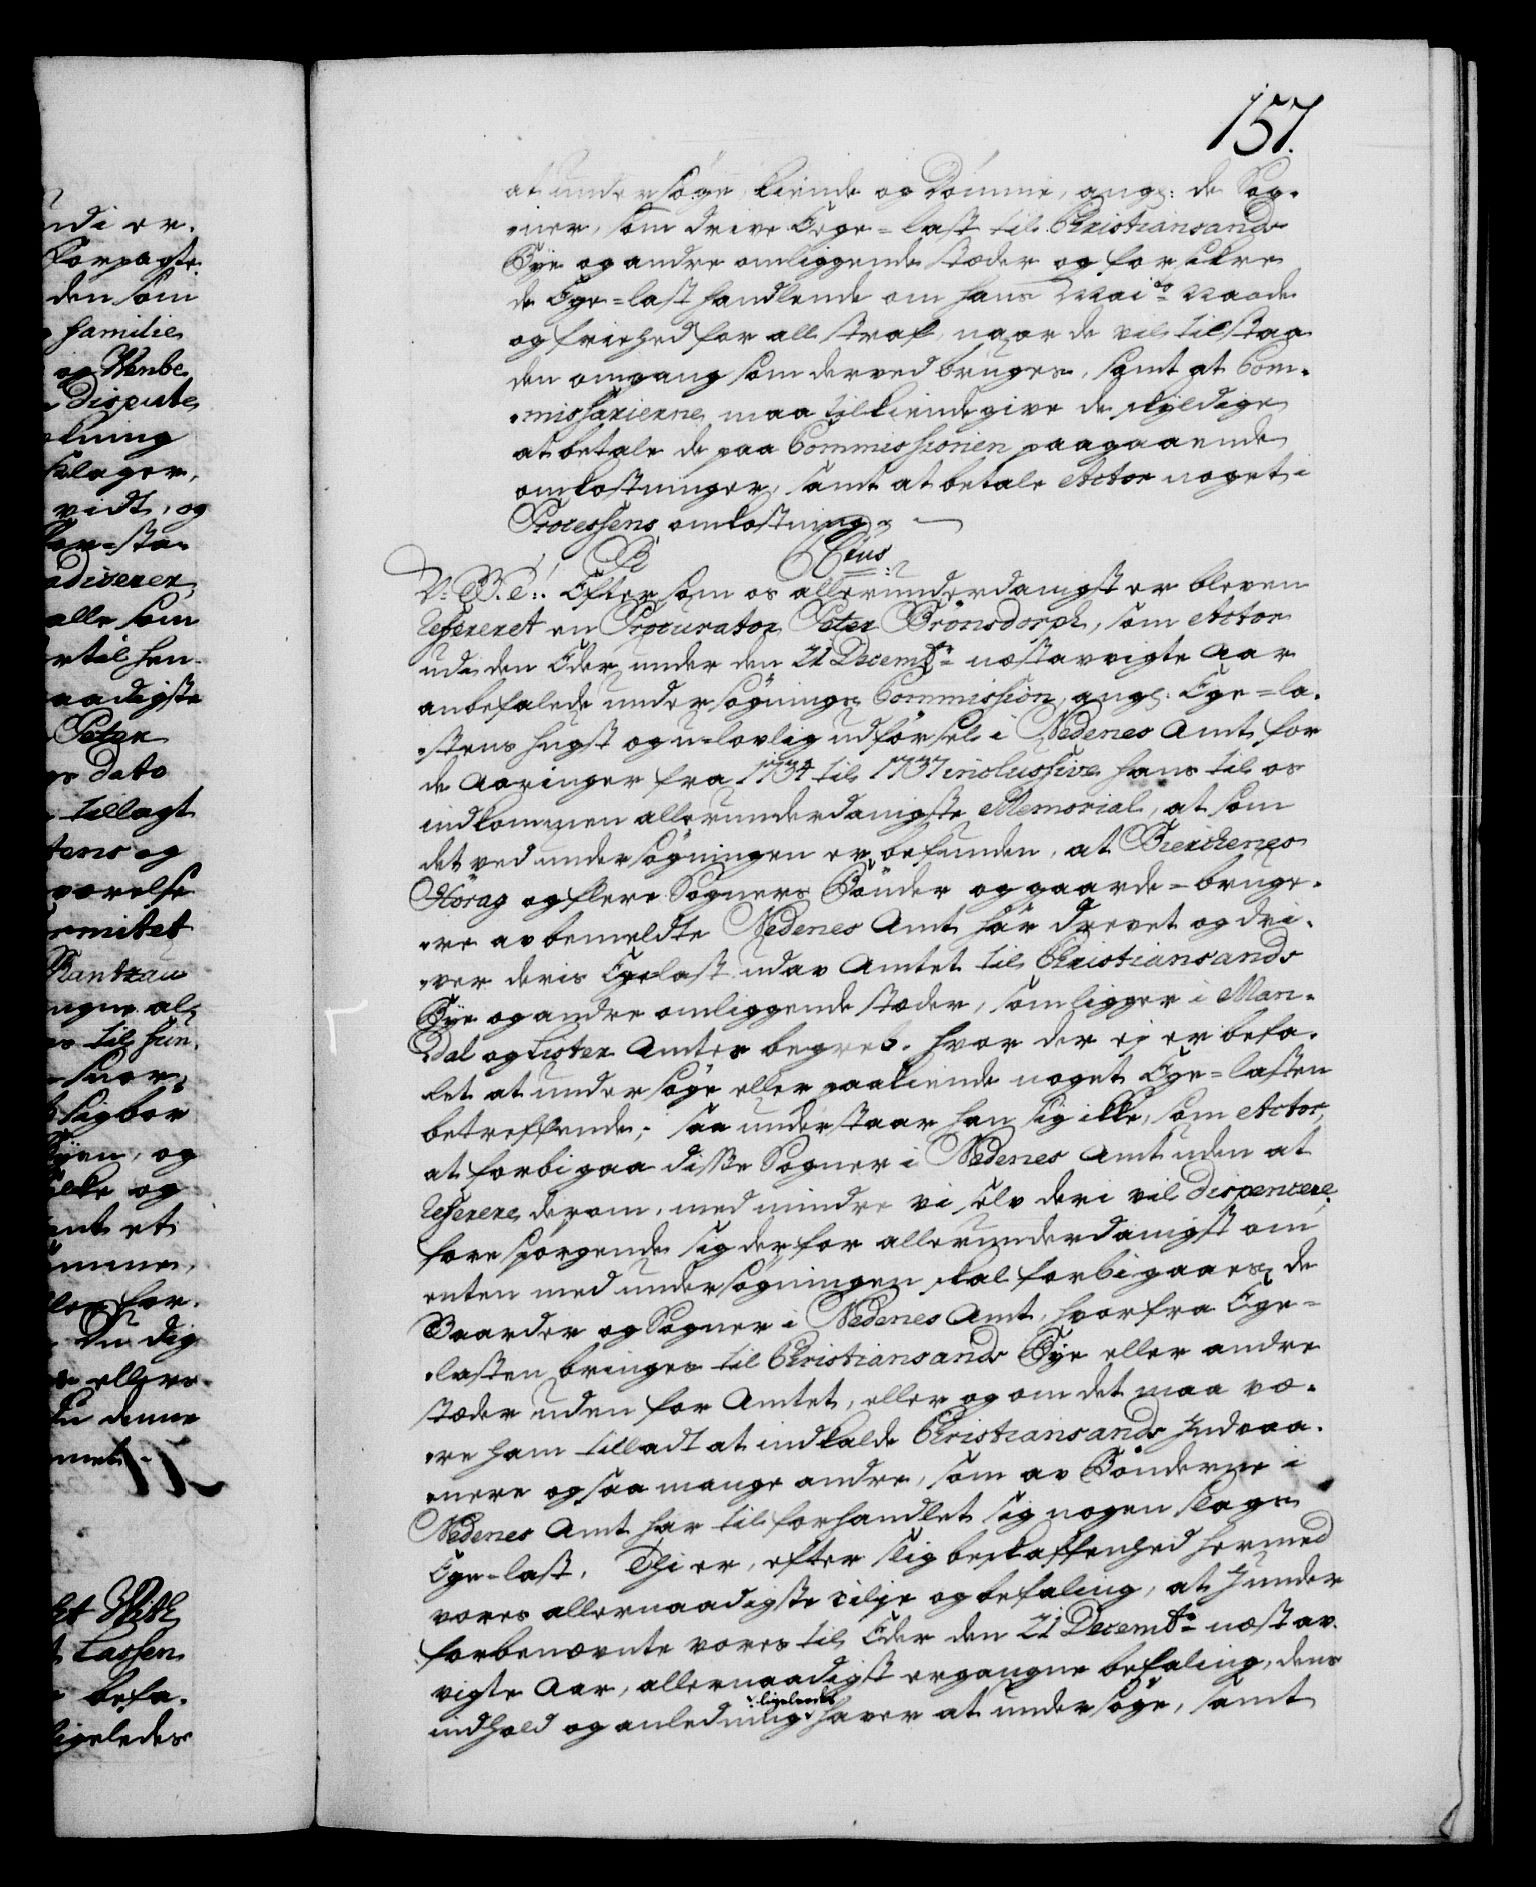 157.
at undersøge, kiende og Dømme, angl: de Sog¬
¬ner, som drive Ege=last til Christiansands
Bÿe og andre omliggende stæder og forsikre
de Ege=last handlende om hans Mai:ts Naade
og friehed for all straf, naar de vil tilstaa
den omgang som derved bruges, samt at Com¬
¬missarierne maa tilkiendegive de skyldige
at betale de paa Commissionen paagaaende
omkostninger, samt at betale Actor noget i
Processens omkostning.
V: G. T: Eftersom os allerunderdanigst er bleven
Refereret en Procurator Peter Brönsdorph, som Actor
udi den Eder under den 21 Decembr: næstavvigte Aar
anbefalede undersøgnings Commission, angl: Ege=la¬
¬stens hugst og u-lovlig udførsel i Nedenes Amt for
de Aaringer fra 1734 til 1737 inclusive hans til os
indkommen allerunderdanigste Memorial, at som
det ved undersøgningen er befunden, at Bierchenes
Hörag og flere Sogners Bönder og gaarde=bruge¬
¬re av bemeldte Nedenes Amt har drevet og dri¬
¬ver deris Egelast udav Amtet til Christiansands
Bÿe og andre omliggende stæder, som ligger i Man¬
¬dal og Lister Amters begreb. hvor der ej er befa¬
let at undersøge eller paakiende noget Ege=lasten
betreffende; saa understaar han sig ikke, som Actor,
at forbigaa disse Sogner i Nedenes Amt uden at
Referere derom, med mindre vi selv deri vil dispencere,
forespørgende sig derfor allerunderdanigst om
enten med undersøgningen skal forbigaaes de
Gaarder og Sogner i Nedenes Amt, hvorfra Ege=
¬lasten bringes til Christiansands Bÿe eller andre
stæder uden for Amtet, eller og om det maa væ¬
¬re ham tilladt at indkalde Christiansands Indvaa¬
¬nere og saa mange andre, som av Bönderne i
Nedenes Amt har tilforhandlet sig nogen slags
Ege=last. Thi er, efter slig beskaffenhed hermed
vores allernaadigste vilje og befaling, at I under
forbenævnte vores til Eder den 21 Decembr: næstav¬
vigte Aar, allernaadigst ergangne befaling, dens
indhold og anledning ligeledes haver at undersøge, samt